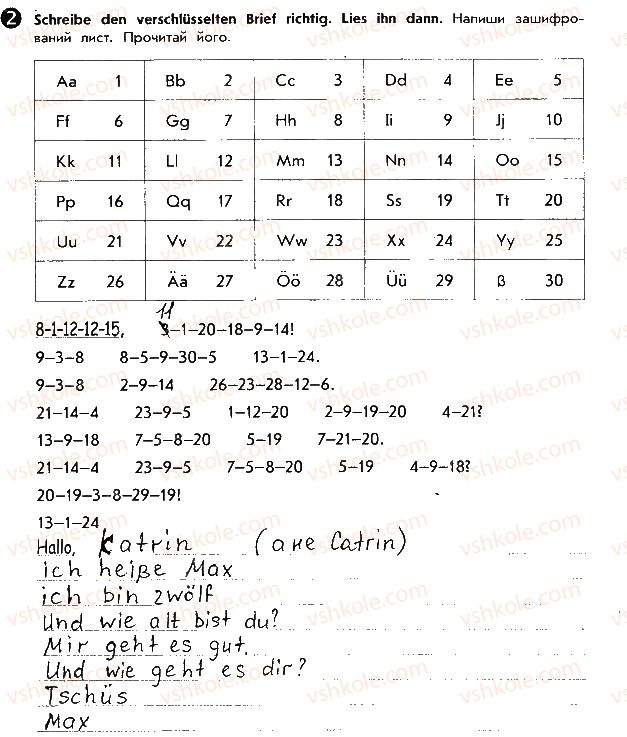 2 Schreibe den verschlüsselten Brief richtig. Lies ihn dann. Напиши зашифро-
ваний лист. Прочитай його.
Aa 1 Bb 2 Cc 3 Dd 4 Ee 5
Ff 6 Gg 7 Hh 8 Ii 9 Jj 10
Kk 11 Ll 12 Mm 13 Nn 14 Oo 15
Pp 16 Qq 17 Rr 18 Ss 19 Tt 20
Uu 21 Vv 22 Ww 23 Xx 24 Yy 25
Zz 26 Ää 27 Öö 28 Üü 29 ß 30
11
8-1-12-12-15, 3-1-20-18-9-14!
9-3-8 8-5-9-30-5 13-1-24.
9-3-8 2-9-14 26-23-28-12-6.
21-14-4 23-9-5 1-12-20 2-9-19-20 4-21?
13-9-18 7-5-8-20 5-19 7-21-20.
21-14-4 23-9-5 7-5-8-20 5-19 4-9-18?
20-19-3-8-29-19!
13-1-24
Hallo, Katrin (а не Catrin)
ich heiße Max
ich bin zwölf
Und wie alt bist du?
Mir geht es gut.
Und wie geht es dir?
Tschüs
Max